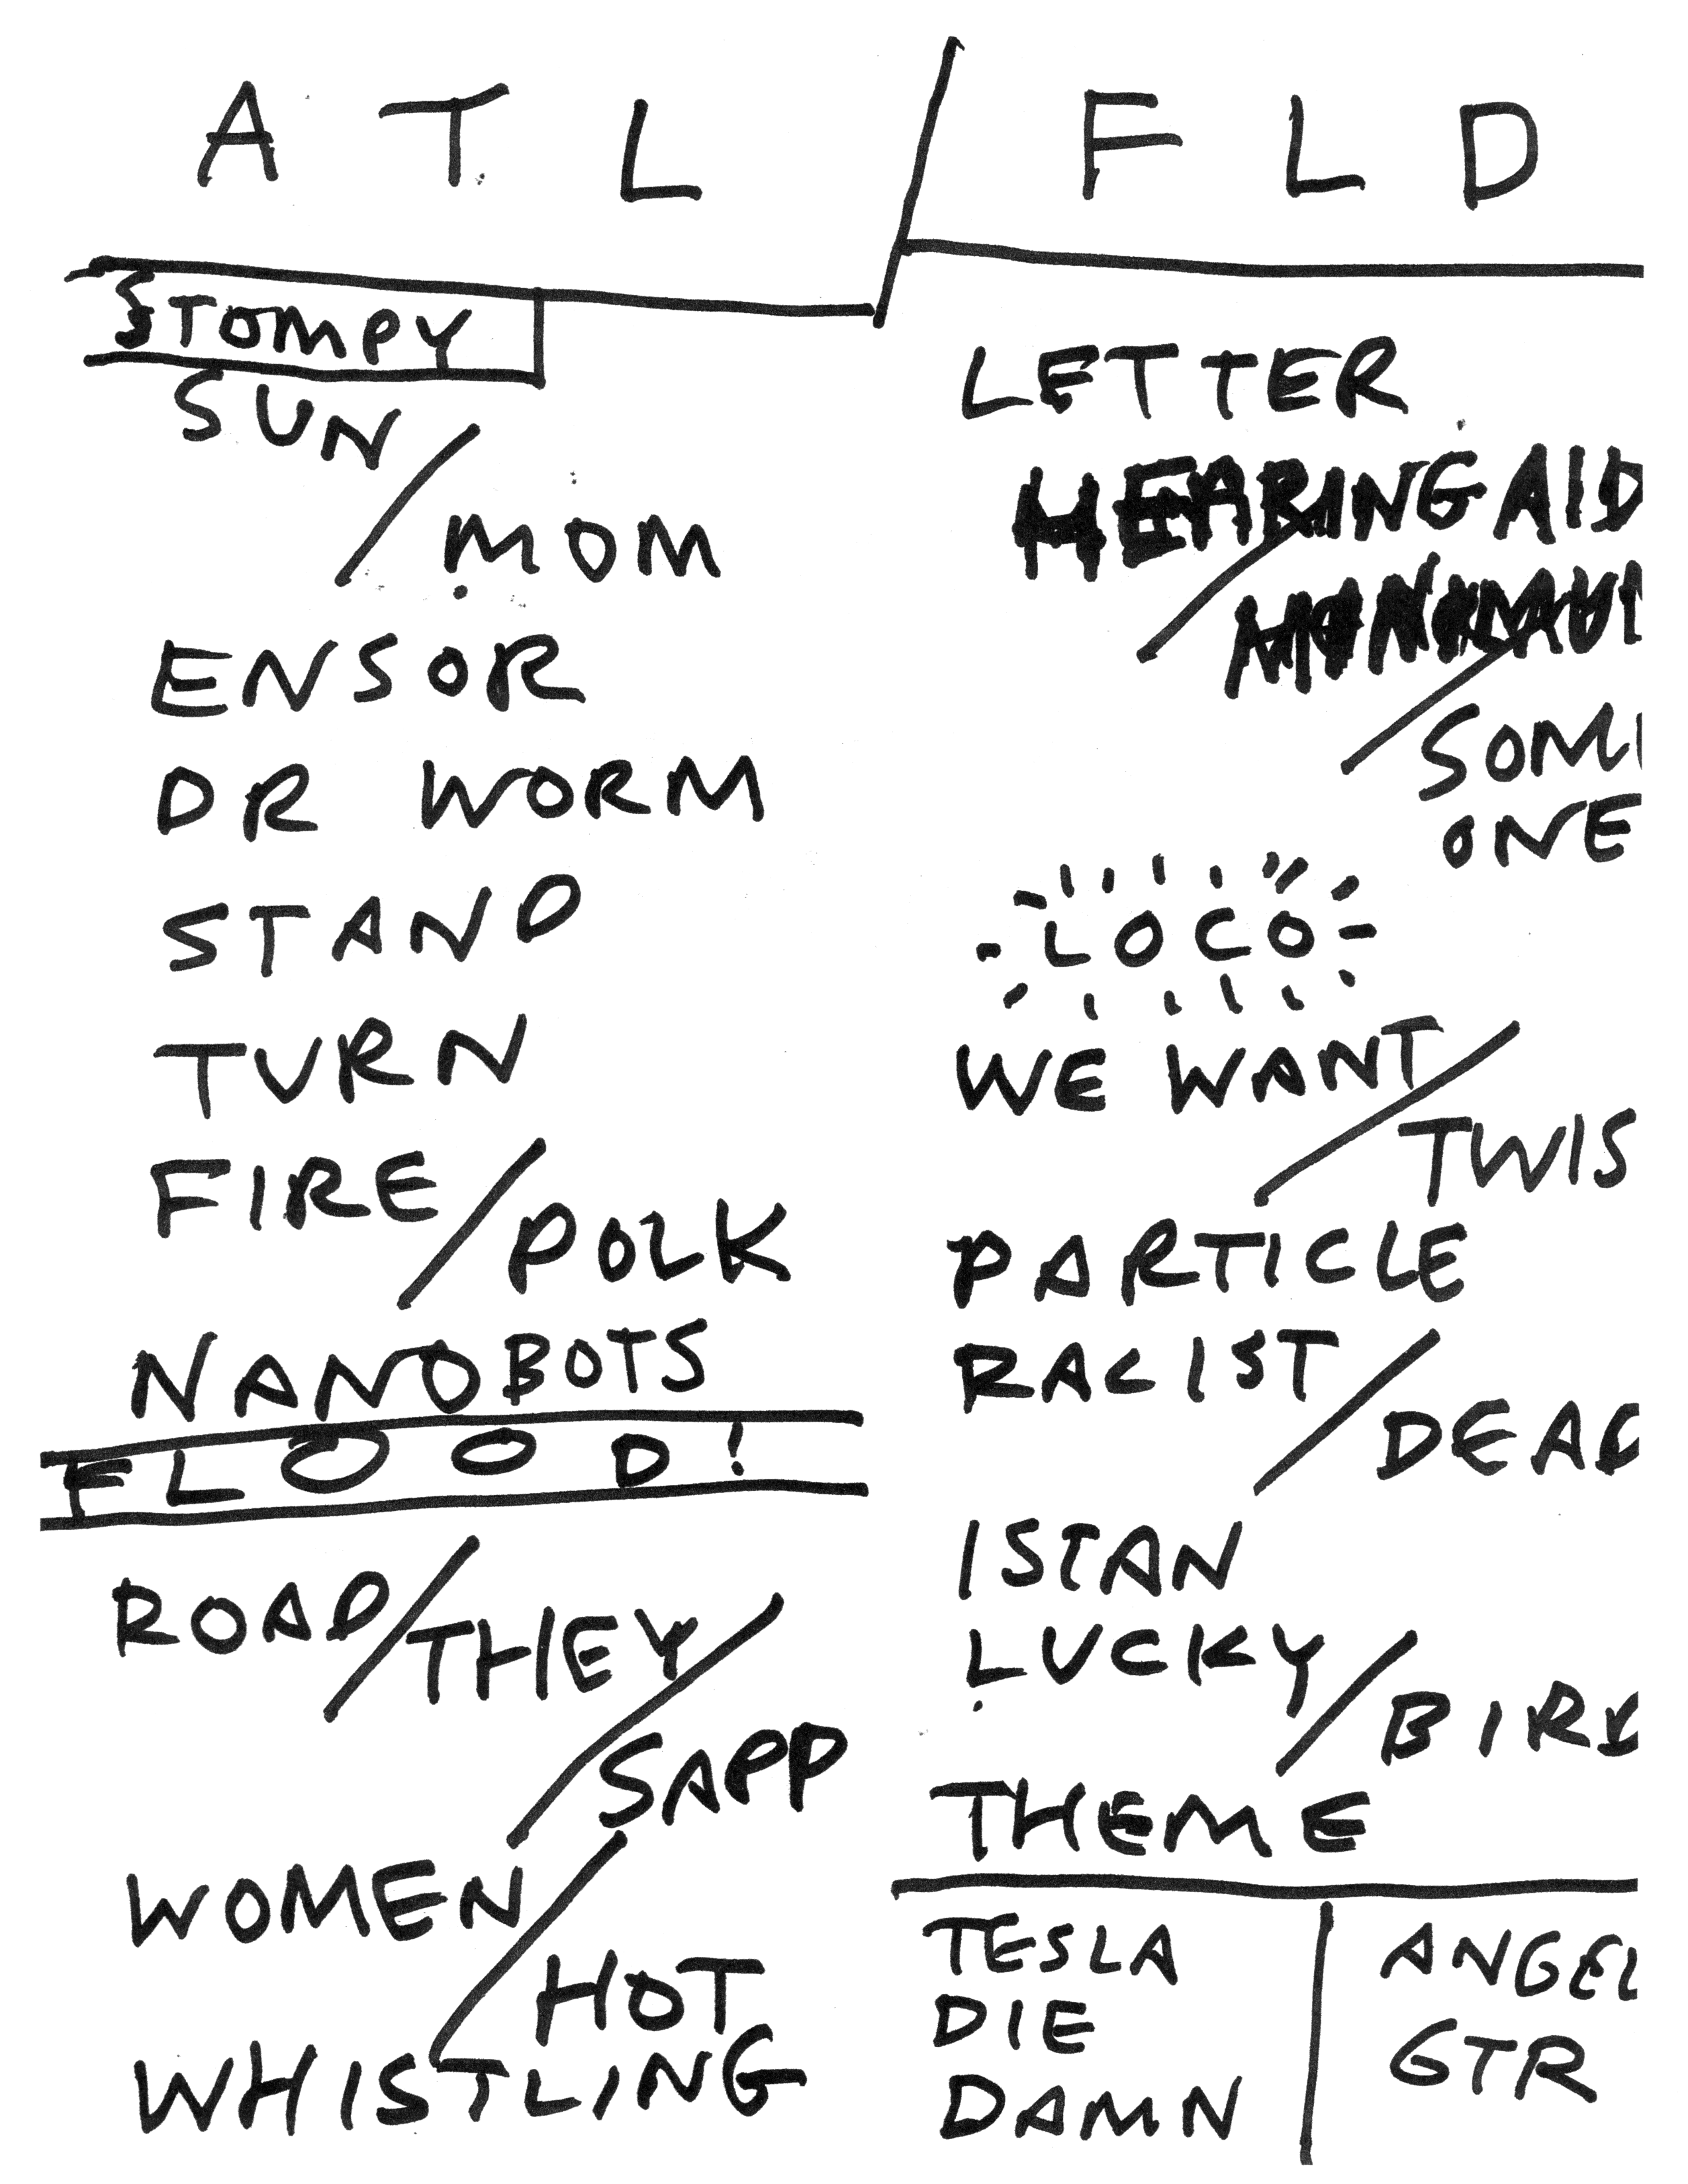 ATL / FLD
STOMPY
SUN
/ MOM
ENSOR
DR WORM
STAND
TURN
FIRE
/ POLK
NANOBOTS
FLOOD!
ROAD
/ THEY
/ SAPP
WOMEN
/ HOT
WHISTLING
LETTER
HEARING AID
/
/ SOM
ONE
LOCO
WE WANT
/ TWIS
PARTICLE
RACIST
/ DEAD
ISTAN
LUCKY
/ BIRD
THEME
TESLA
DIE
DAMN
ANGEL
GTR